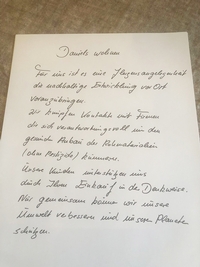 Daniels wohnen
Für uns ist es eine Herzensangelegenheit
die nachhaltige Entwicklung vor Ort
voranzubringen.
Wir knüpfen Kontakte mit Firmen
die sich verantwortungsvoll um den
gesamten Anbau der Rohmaterialien
(ohne Pestizide) kümmern.
Unsere Kunden unterstützen uns
durch Ihren Einkauf in der Denkweise.
Nur gemeinsam können wir unsere
Umwelt verbessern und unseren Planeten
schützen.